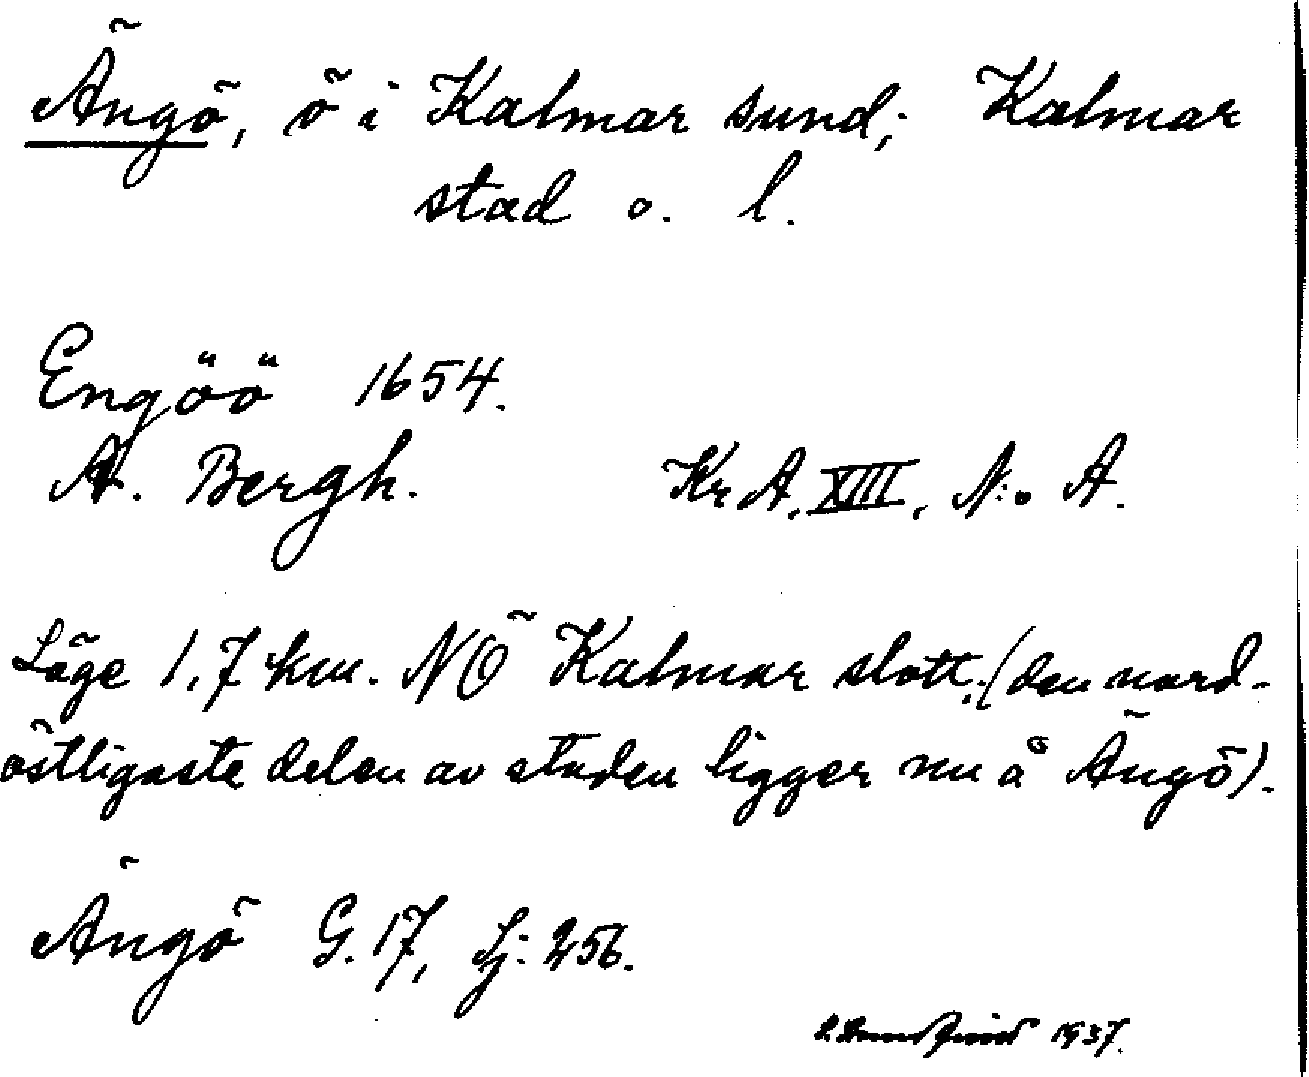 Ängö, ö i Kalmar sund; Kalmar
stad o. l.
Engöö 1654.
A. Bergh. KrA. XIII, N:o A.
Läge 1,7 km. NÖ Kalmar slott. (den nord-
östligaste delen av staden ligger nu å Ängö).
Ängö G. 17, Lj: 256.
1937.